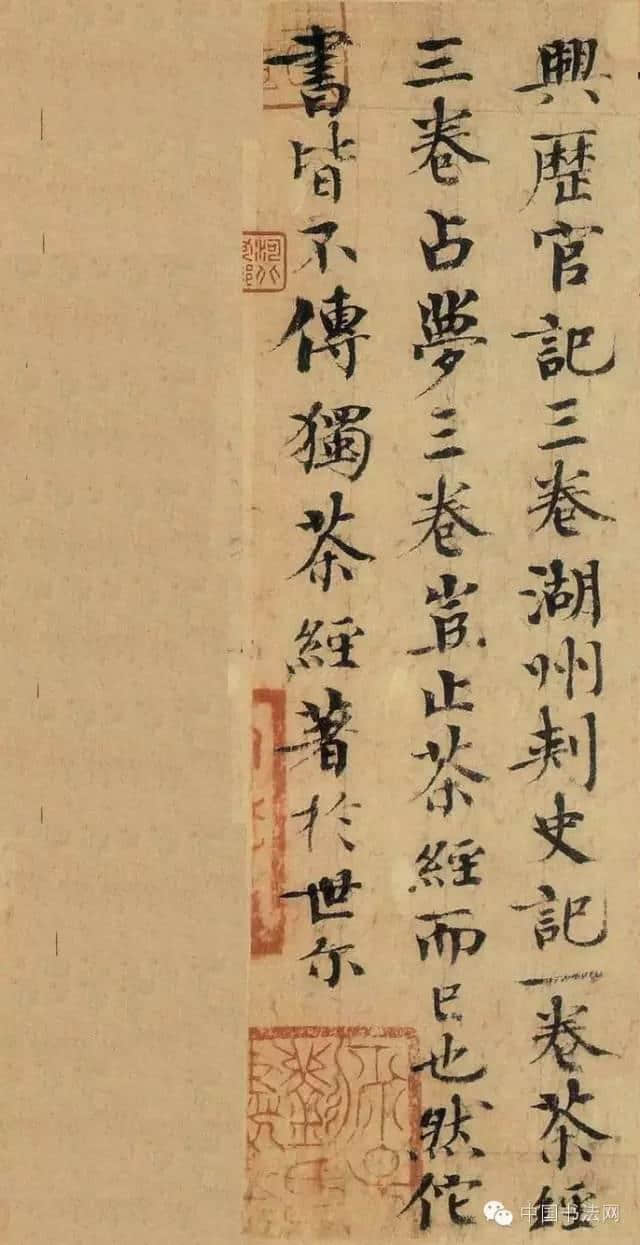 興歷官記三卷湖州刾史記一卷茶經
三卷占夢三卷豈止茶經而已也然佗
書皆不傳獨茶經著於世尔
中国书法网